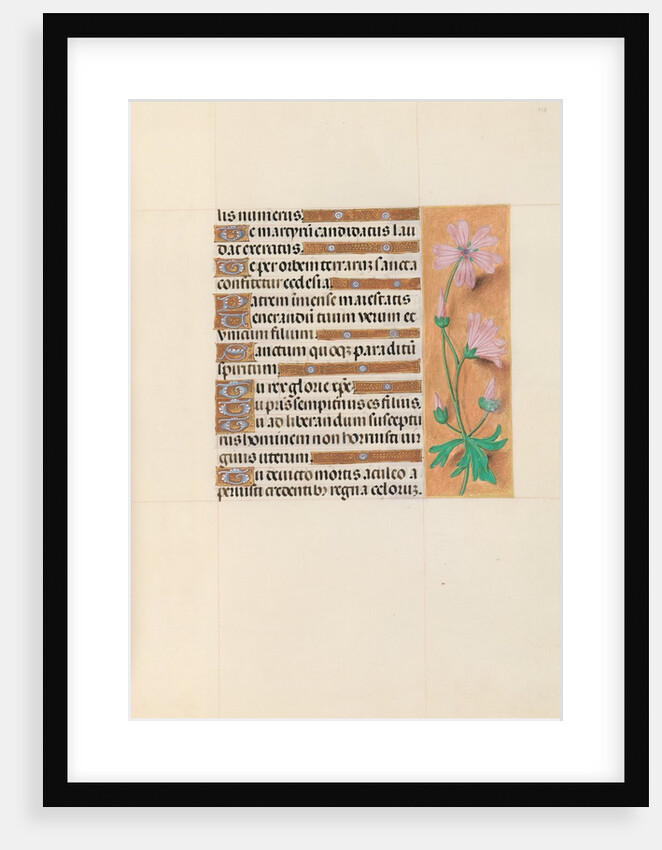 lis numerus
Te martyrū candidatus lau
dat exercitus.
Te per orbem terrarum sancta
confitetur ecclesia
Patrem īmense maiestatis
Venerandū tuum verum et
vnicum filium.
Sanctum quoqz paraclitū
spiritum
Tu rex glorie xp̄e.
Tu pr̄is sempiternus es filius.
Tu ad liberandum susceptu
rus hominem non horruisti vir
ginis uterum.
Tu deuicto mortis aculeo a
peruisti credentibz regna celorum.